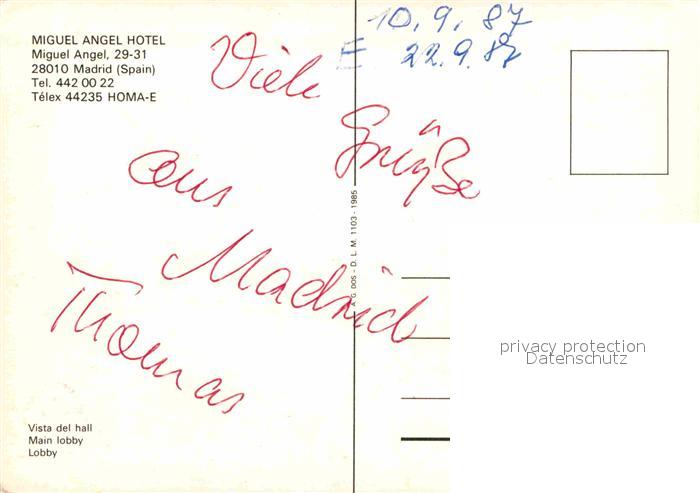 MIGUEL ANGEL HOTEL
Miguel Angel, 29-31
28010 Madrid (Spain)
Tel. 442 00 22
Télex 44235 HOMA-E
10.9.87
E 22.9.87
Viele
Grüße
aus
Madrid
Thomas
A. G. 005 - D. L. M. 1103 - 1985
privacy protection
Datenschutz
Vista del hall
Main lobby
Lobby